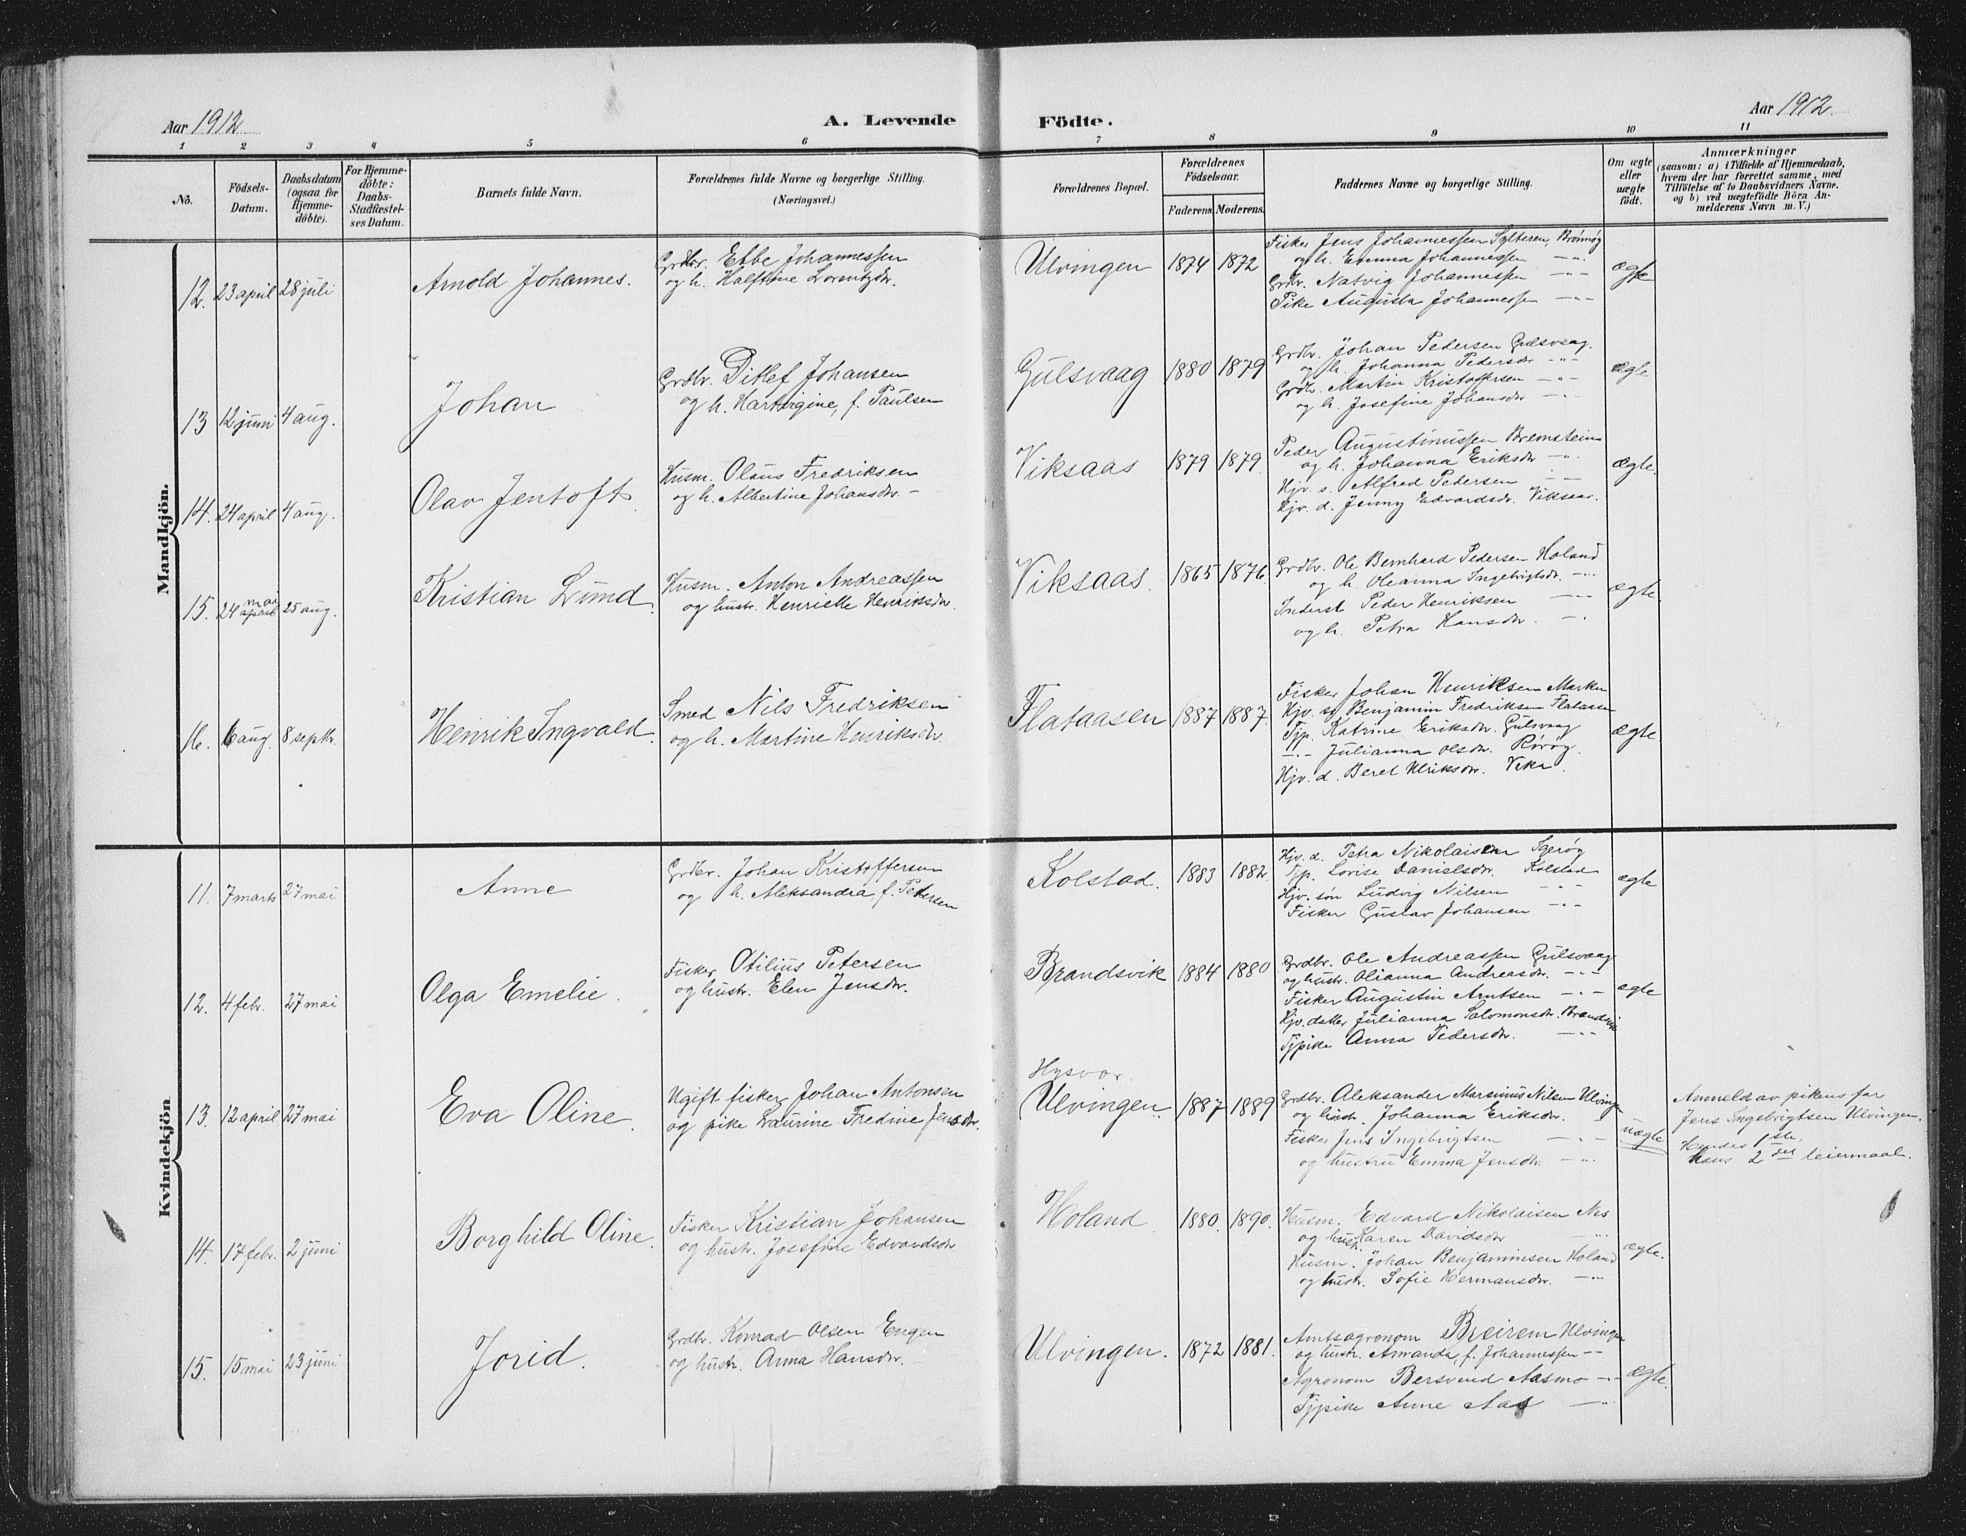 Aar 1912
A. Levende Födte.
Aar 1912
1 2 3 4 5 6 7 8 9 10 11
No.
Födsels-Datum.
Daabsdatum (ogsaa for Hjemme-döbte).
For Hjemme-döbte: Daabs-Stadfæstel-ses Datum.
Barnets fulde Navn.
Forældrenes fulde Navne og borgerlige Stilling.
(Næringsvei.)
Forældrenes Bopæl.
Forældrenes Födselsaar.
Faderens. Moderens.
Faddernes Navne og borgerlige Stilling.
Om ægte eller uægte födt.
Anmærkninger
(saasom: a) i Tilfælde af Hjemmedaab,
hvem der har forrettet samme, med
Tilföielse af to Daabsvidners Navne,
og b) ved uægtefödte Börn An-
melderens Navn m. V.)
Mandkjön.
12. 23 april 28 juli Arnold Johannes.
Grdbr. Etbe Johannessen
og h. Halftine Lorentzdr.
Ulvingen 1874 1872
Fisker Jens Johannessen Sylteren, Brönnög
og h. Emma Johannessen -"-
Grdbr. Natvig Johannessen -"-
Pike Augusta Johannessen -"-
ægte
13 12 juni 4 aug. Johan
Grdbr. Ditlef Johansen
og h. Hartvigine, f. Paulsen
Gulsvaag 1880 1879
Grdbr. Johan Pedersen Gulsvaag.
og h. Johanna Pedersdr -"-
Grdbr. Martin Kristoffersen -"-
og h. Josefine Johansdr -"-
ægte
14. 24 april 4 aug. Olav Jentoft.
Husm. Olaus Fredriksen
og h. Albertine Johansdr. -
Viksaas 1879 1879.
Peder Augustinussen Bremstein
og h. Johanna Eriksdr -"-
Hjv. s. Alfred Pedersen -"-
Hjv. d. Jenny Edvardsdr. Viksaas.
ægte.
15. 24 mai april 25 aug. Kristian Lund.
Husm. Anton Andreassen
og hustr. Henriette Henriksdr.
Viksaas. 1865 1876.
Grdbr. Ole Bernhard Pedersen Holand
og h. Oleanna Ingebrigtsdr. -"-
Inderst Peder Henriksen -"-
og h. Petra Hansdr. -"-
ægte.
16. 6 aug. 8 septbr. Henrik Ingvald.
Smed Nils Fredriksen
og h. Martine Henriksdr.
Flataasen 1887 1887.
Fisker Johan Henriksen Marken
Hjv. s. Benjamin Fredriksen Flataasen
Tjp. Katrine Eriksdr. Gulsvaag
-"- Julianna Olsdr. Rörög.
Hjv. d. Beret Ulriksdr. Vika.
ægte.
Kvindekjön
11. 7 marts 27 mai Anne
Grdbr. Johan Kristoffersen
og h. Aleksandra, f. Petersen
Kolstad. 1883 1882.
Hjv. d. Petra Nikolaisen
Tjp. Lovise Danielsdr. Kolstad
Hjv. sön Ludvig Nilsen -"-
Fisker Gustav Johansen -"-
ægte
12. 4 febr. 27 mai Olga Emelie.
Fisker Otilius Petersen
og hustr. Elen Jensdr.
Brandsvik 1884 1880
Grdbr. Ole Andreassen Gulsvaag
og hustr. Olianna Andreasdr. -"-
Fisker Augustin Arntsen -"-
Hjv. datter Julianna Salomonsdr. Brandsvik
Tjpike Anna Pedersdr. -"-
ægte
13. 12 april 27 mai Eva Oline.
Ugift fisker Johan Antonsen
og pike Laurine Fredine Jensdr.
Hysvær.
Ulvingen. 1887 1889
Grdbr. Aleksander Marsinius Nilsen Ulvingen
og hustr. Johanna Eriksdr. "
Fisker Jens Ingebrigtsen -"-
og hustru Emma Jensdr. -"-
uægte
Anmeld av pikens far
Jens Ingebrigtsen Ulvingen.
Hendes 1ste,
hans 2det leiermaal.
14. 17 febr. 2 juni Borghild Oline.
Fisker Kristian Johansen
og hustr. Josefine Edvardsdr
Holand 1880. 1890.
Husm. Edvard Nikolaisen Nes
og hustr. Karen Davidsdr -"-
Husm. Johan Benjaminsen Holand
og hustr. Sofie Hermansdr. -"-
ægte.
15. 15 mai 23 juni Jorid.
Grdbr. Konrad Olsen Engen
og hustr. Anna Hansdr.
Ulvingen. 1872 1881.
Amtsagronom Breirem Ulvingen
og hustr. Amanda, f. Johannessen -"-
Agronom Bersvend Aasmo -"-
Tjpike Anne Aas -"-
ægte.